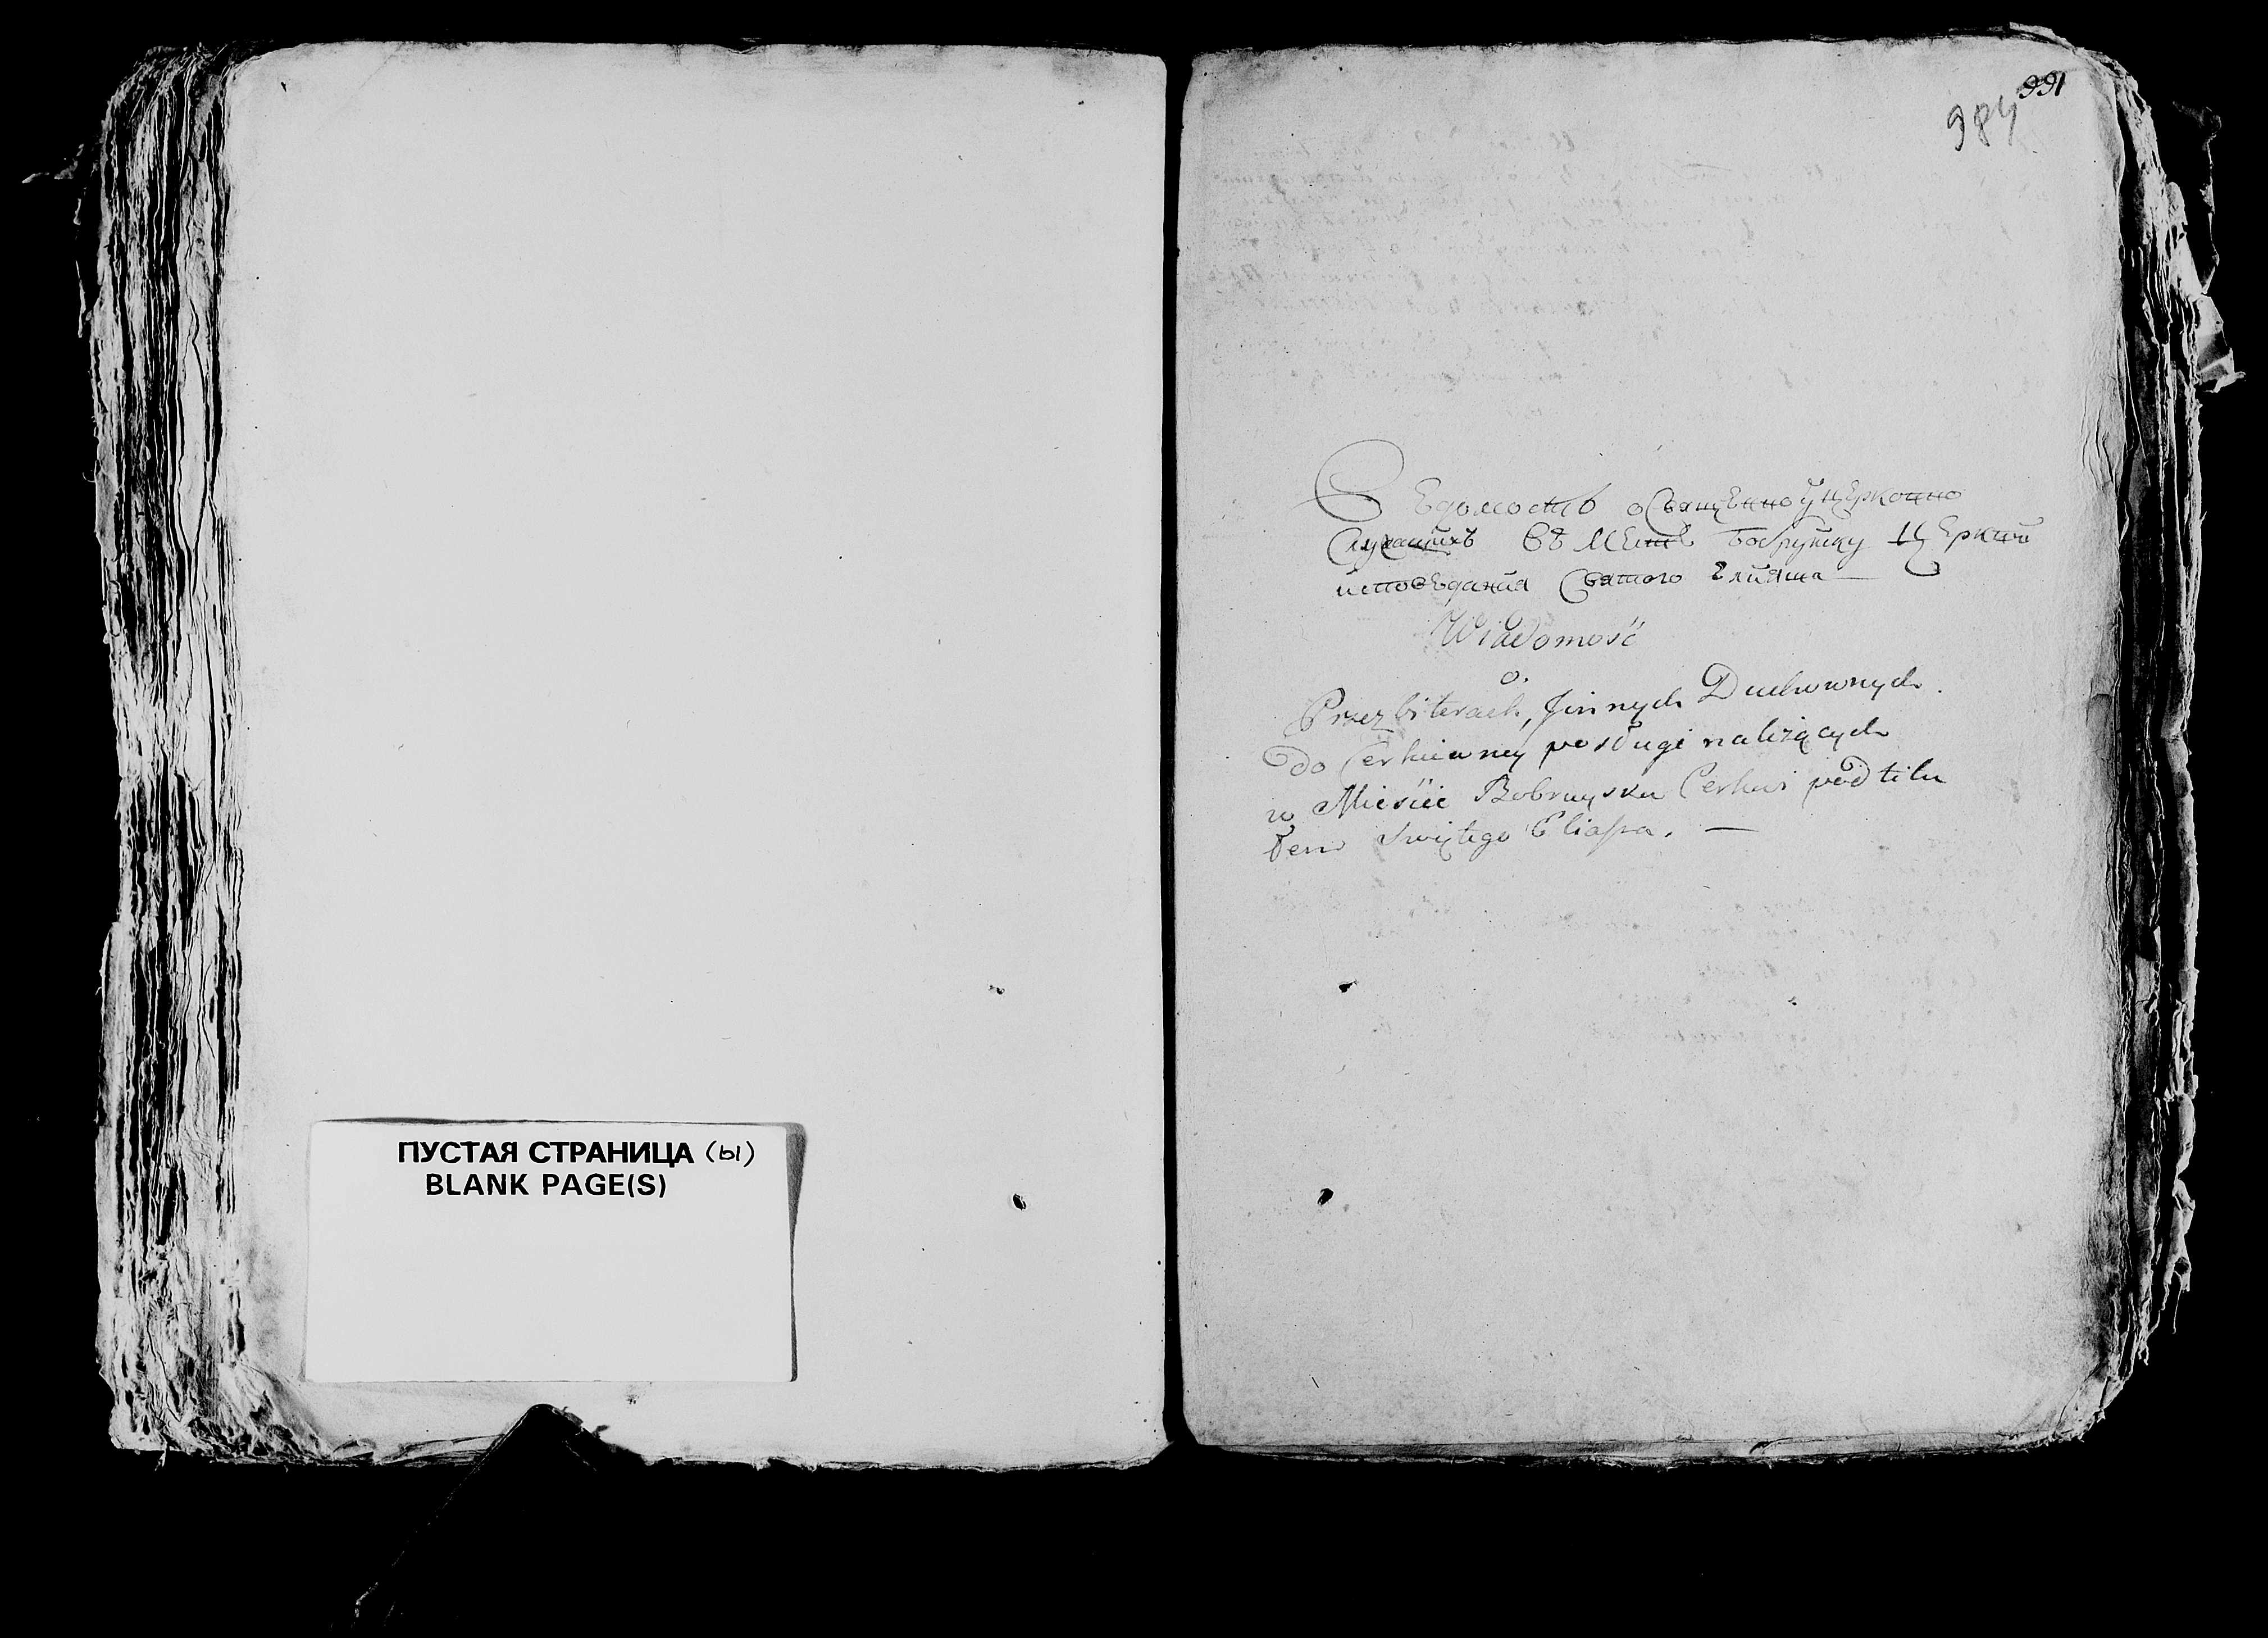 ПУСТАЯ СТРАНИЦА (ы)
BLANK PAGE(S)
991
984
Вѣдомость о Священно й церковно
Служащихъ въ Местѣ Бобруйску Церкви
исповѣдания Святого Елияша —
Wiadomość
o.
Prezbiterach, Jinnych Duchownych.
do Cerkiewney posługi należących
w Mieście Bobruysku Cerkwi pod titu
łem Swiętego Eliasza. —